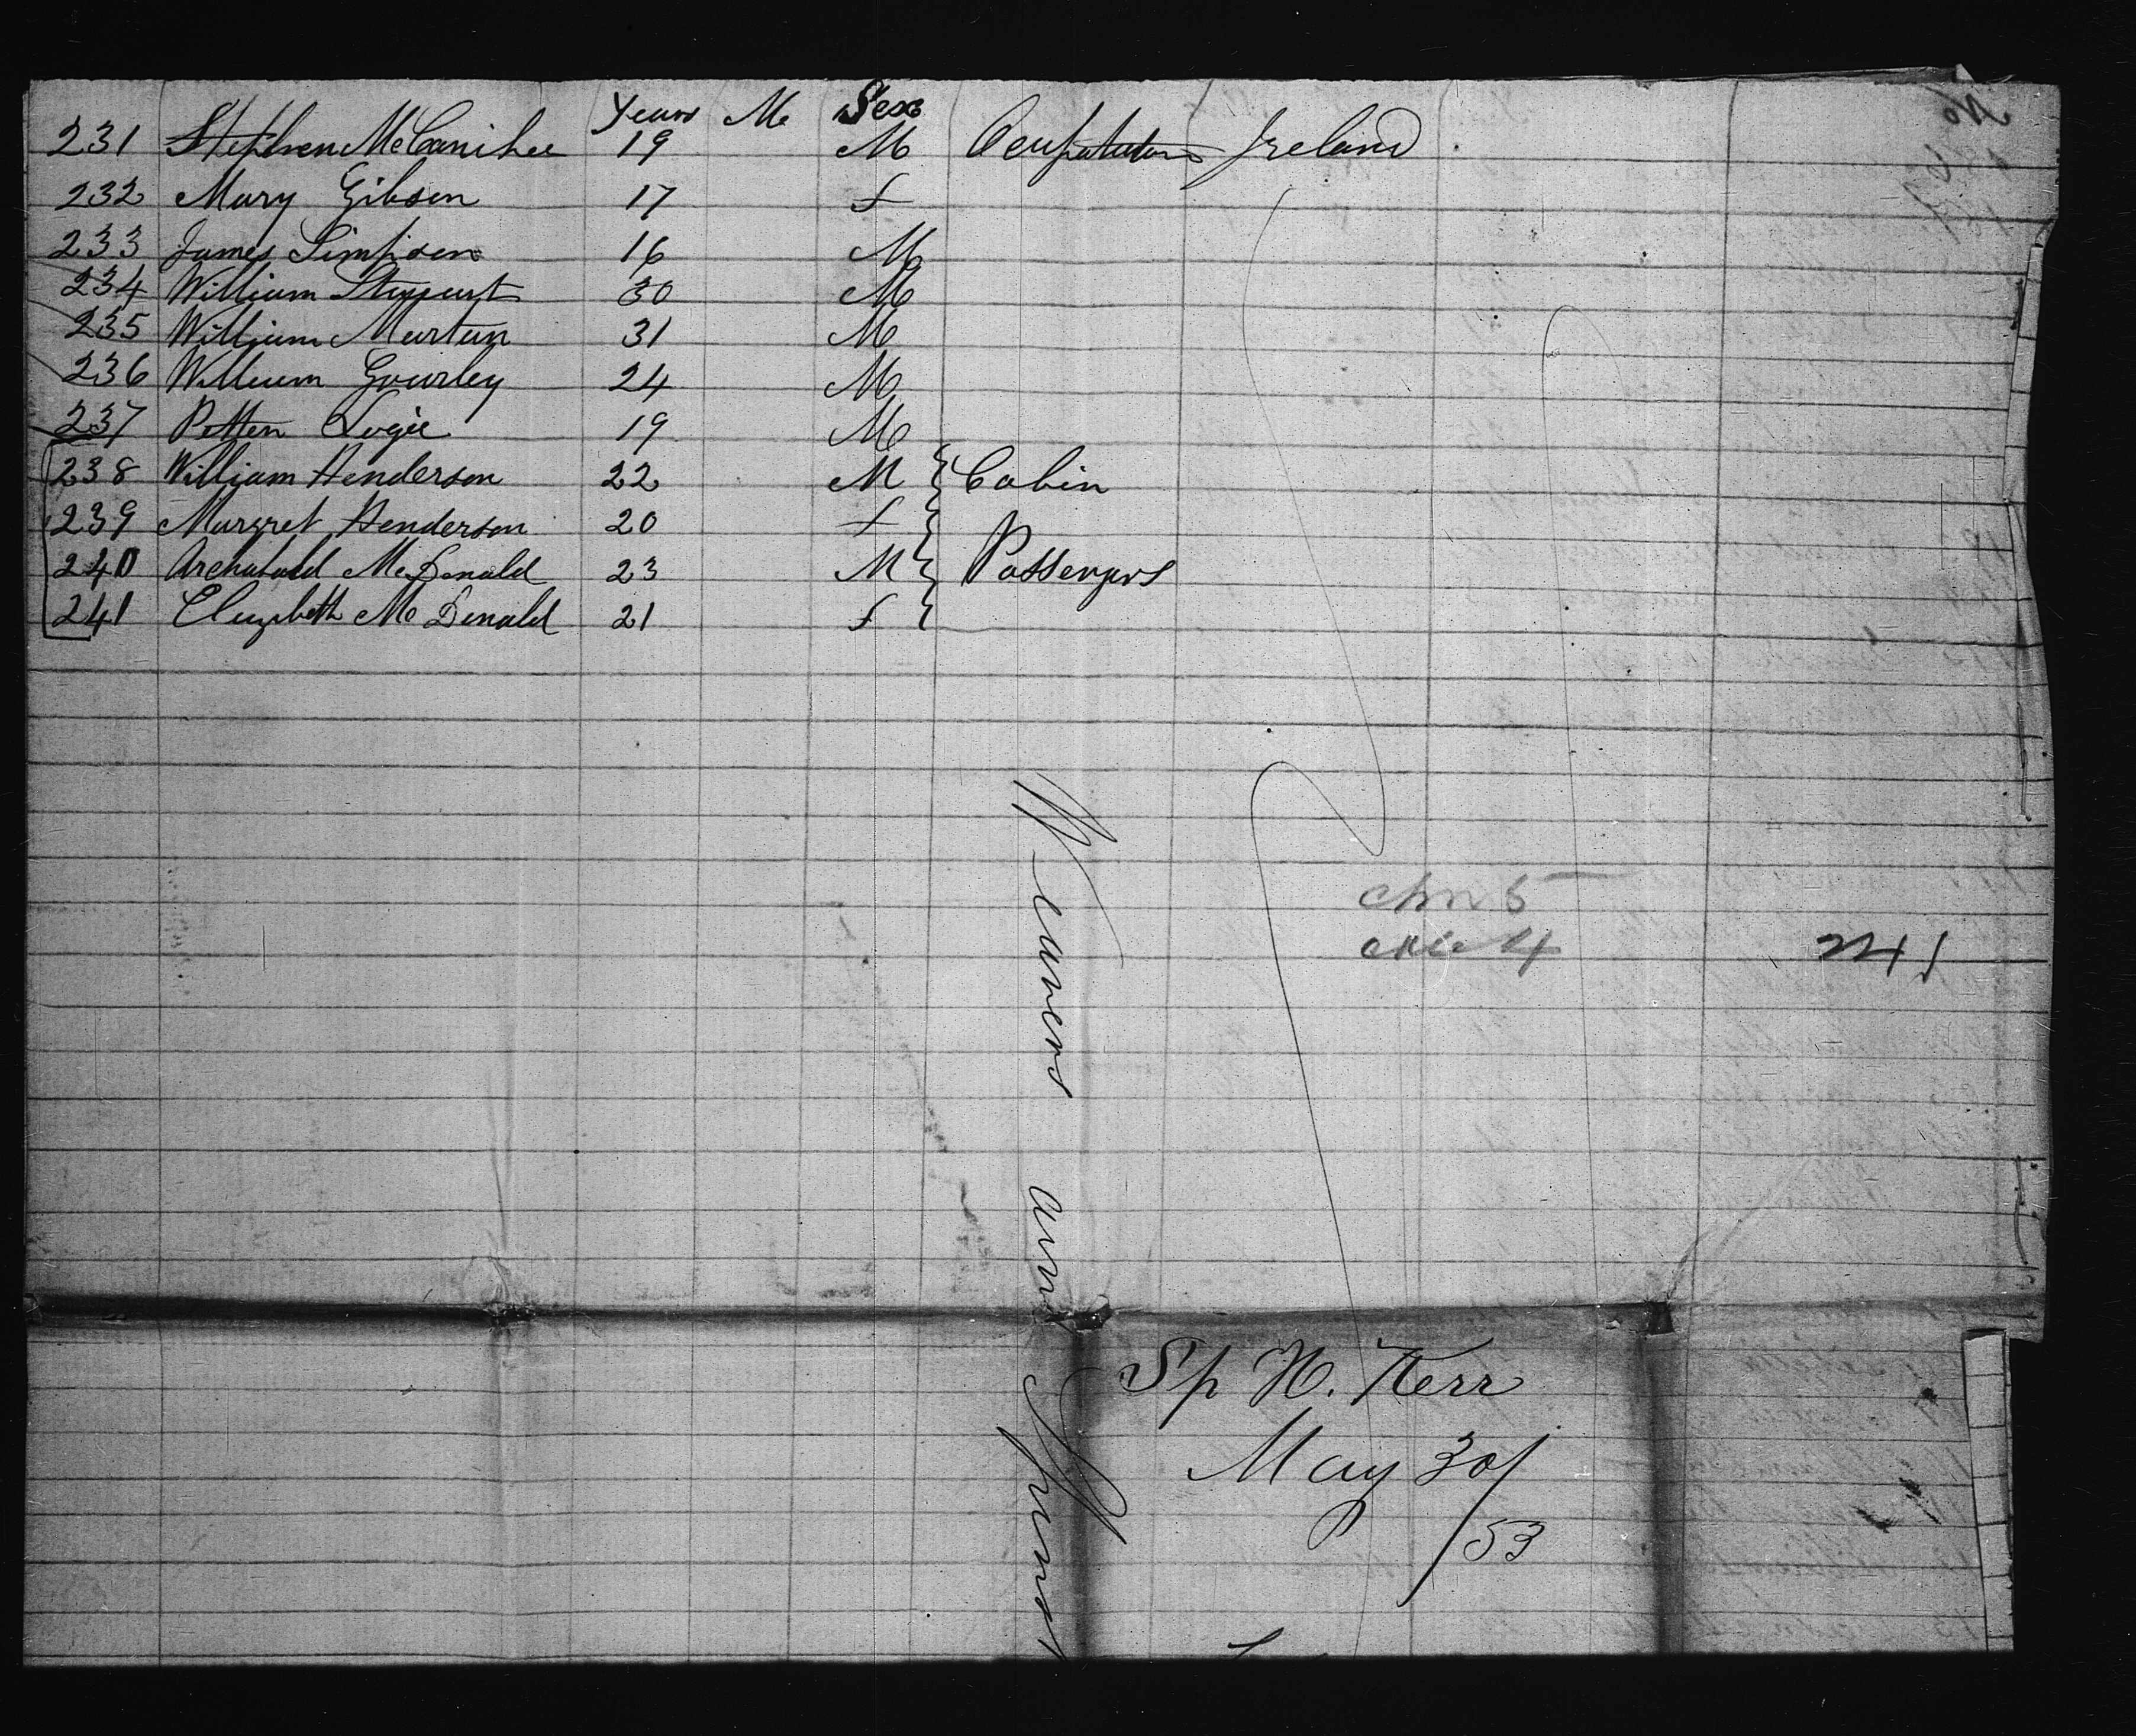 Years M Sex
231 Stephen McConihee 19 M Ocupatutons Ireland
232 Mary Gibson 17 f
233 James Simpson 16 M
234 William Stewart 30 M
235 William Martin 31 M
236 William Gourley 24 M
237 Petter Logie 19 M
238 William Henderson 22 M Cabin
239 Margret Henderson 20 f
240 Archabald McDonald 23 M Passengers
241 Elizabeth McDonald 21 f
5
4
241
Weavers and
Sp H. Kerr
May 30/
/53